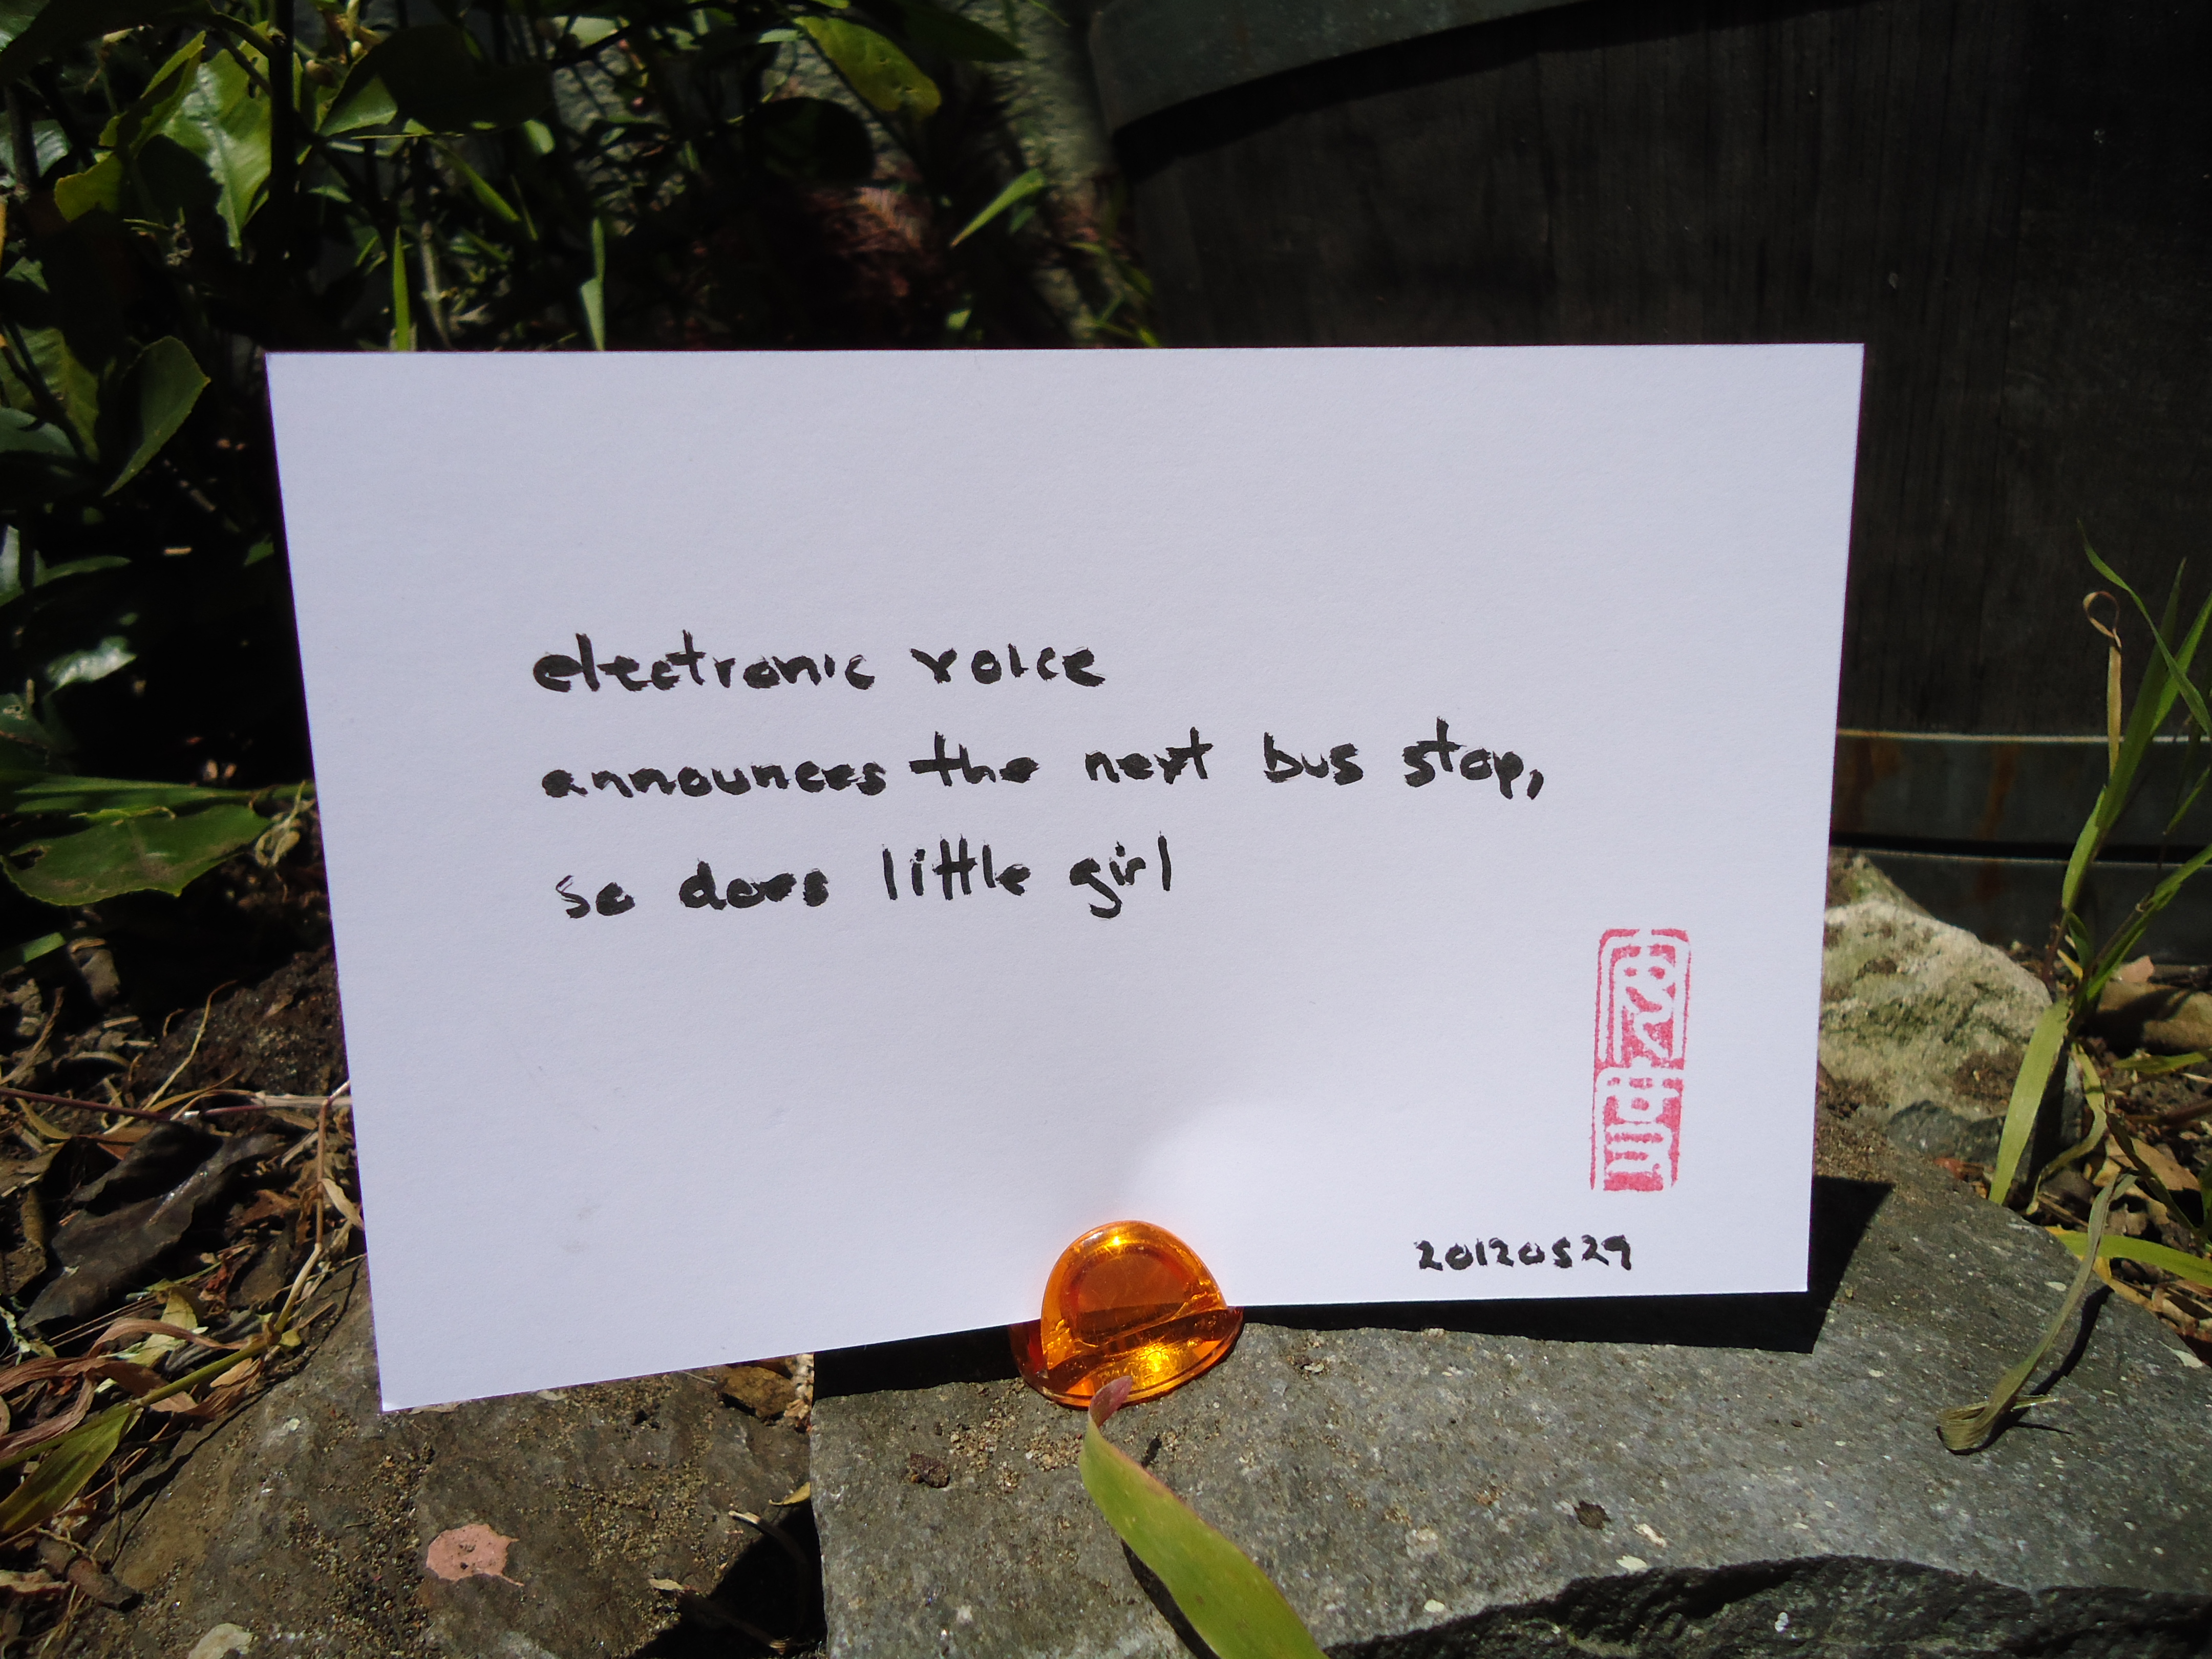 electronic voice
announces the next bus stop,
so does little girl
20120529